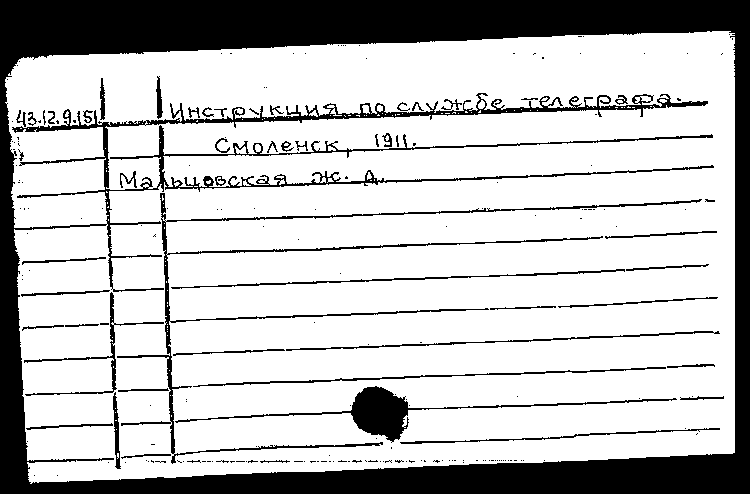 43.12.9.151 Инструкция по службе телеграфа.
Смоленск, 1911.
Мальцовская ж. д.